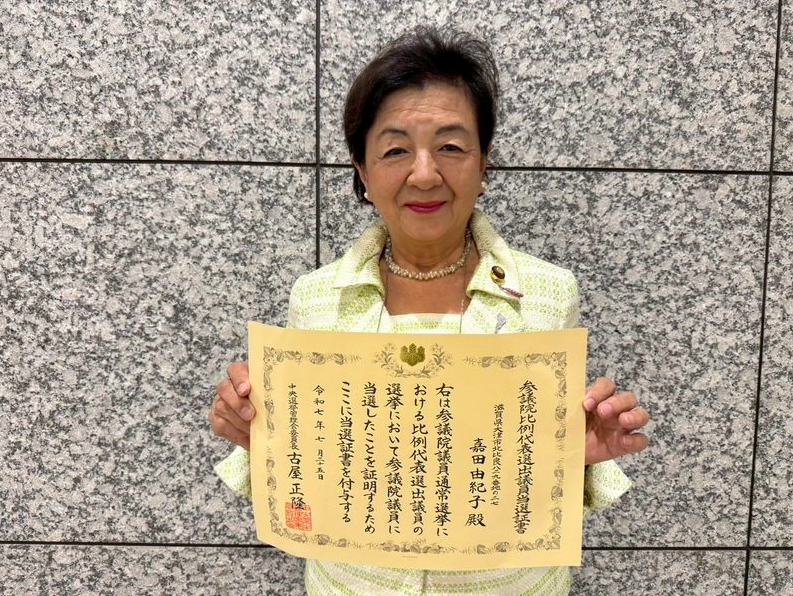 参議院比例代表選出議員当選証書
滋賀県大津市北比良八二九番地の二七
嘉田由紀子殿
右は参議院議員通常選挙に
おける比例代表選出議員の
選挙において参議院議員に
当選したことを証明するため
ここに当選証書を付与する
令和七年七月二十五日
中央選挙管理会委員長 古屋正隆